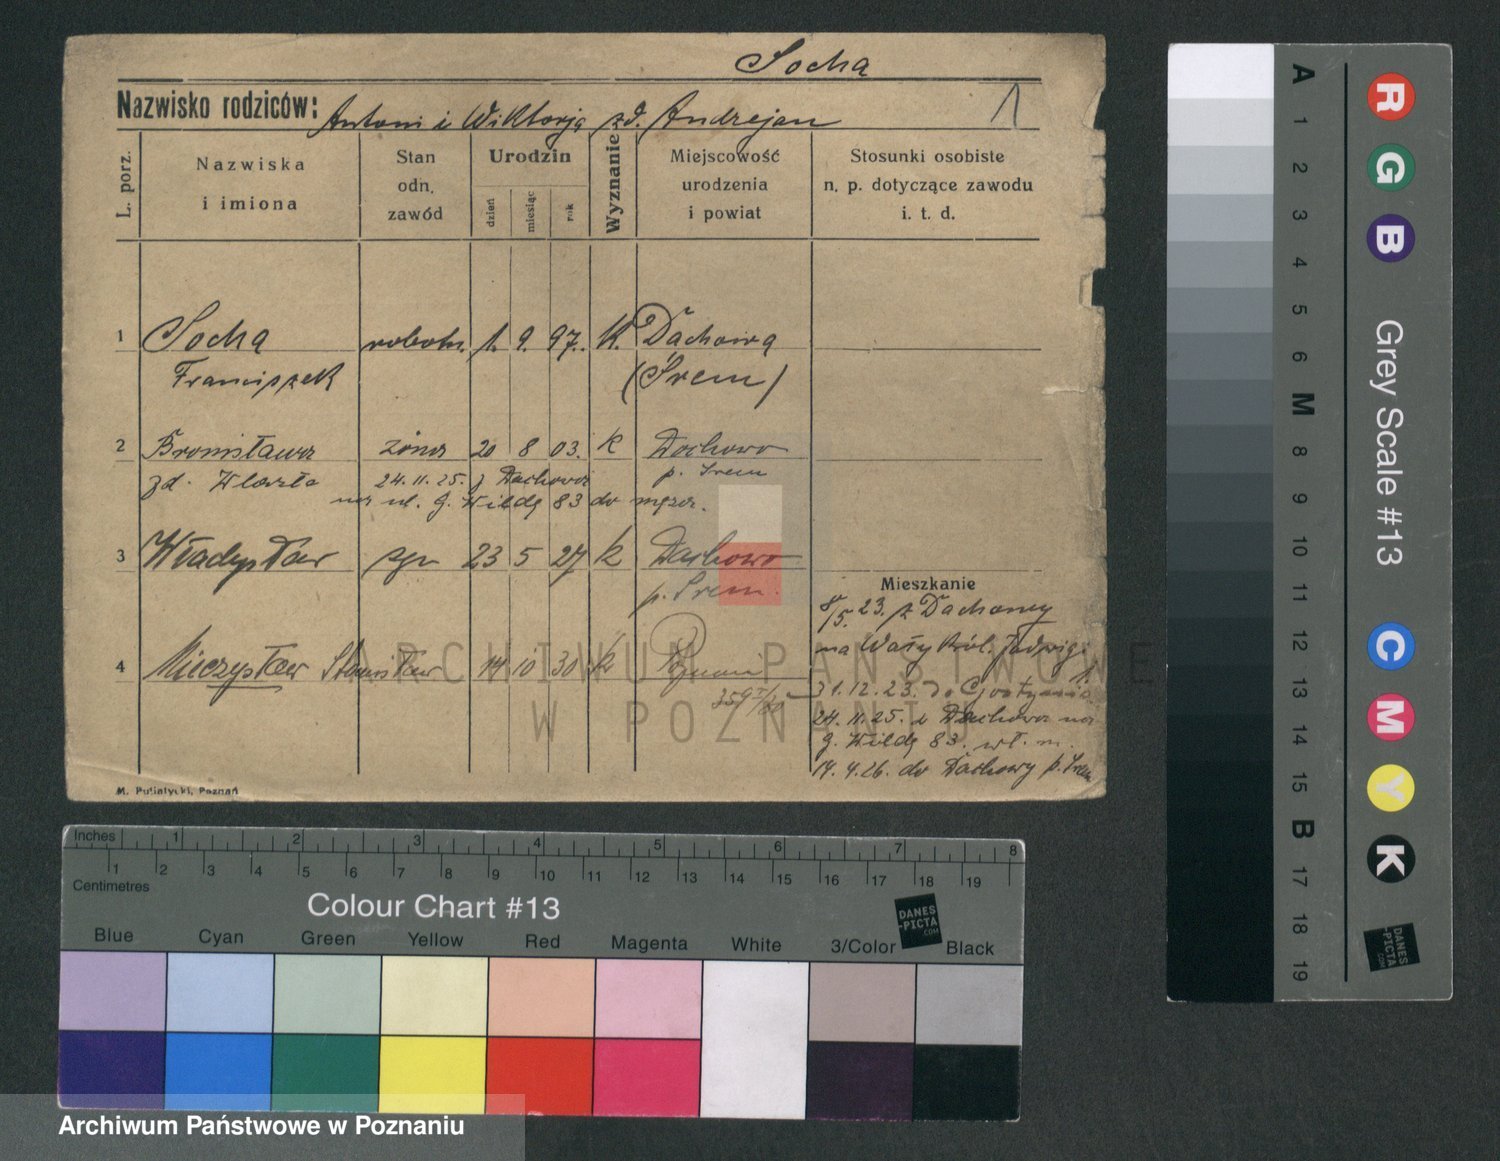 Socha
Nazwisko rodziców: Antoni i Wiktorja zd. Andrejan
1
L. porz.
Nazwiska i imiona
Stan odn. zawód
Urodzin
dzień miesiąc rok
Wyznanie
Miejscowość urodzenia i powiat
Stosunki osobiste n. p. dotyczące zawodu i. t. d.
1 Socha robotn. 1. 9. 97. K. Dachowa
Franciszek (Śrem)
2 Bronisława żona 20 8 03. k Dachowo
zd. 24.11.25. z Dachowa p. Śrem
na ul. G. Wildę 83 do męża.
3 Władysław syn 23 5 27 k Dachowo
p. Śrem.
Mieszkanie
8/5. 23. z Dachowy
na Wały Król. Jadwigi
4 Mieczysław Stanisław 14 10 30 k Poznań
31.12.23. do Gostynia
24.11.25. z Dachowa na
G. Wildę 83. wł. m.
14.4.26. do Dachowy p. Śrem
M. Putiatycki, Poznań
ARCHIWUM PAŃSTWOWE
W POZNANIU
Inches 1 2 3 4 5 6 7 8
1 2 3 4 5 6 7 8 9 10 11 12 13 14 15 16 17 18 19
Centimetres
Colour Chart #13
DANES
-PICTA
.COM
Blue Cyan Green Yellow Red Magenta White 3/Color Black
Archiwum Państwowe w Poznaniu
A 1 2 3 4 5 6 M 8 9 10 11 12 13 14 15 B 17 18 19
R G B
Grey Scale #13
C M Y K
DANES
-PICTA
.COM